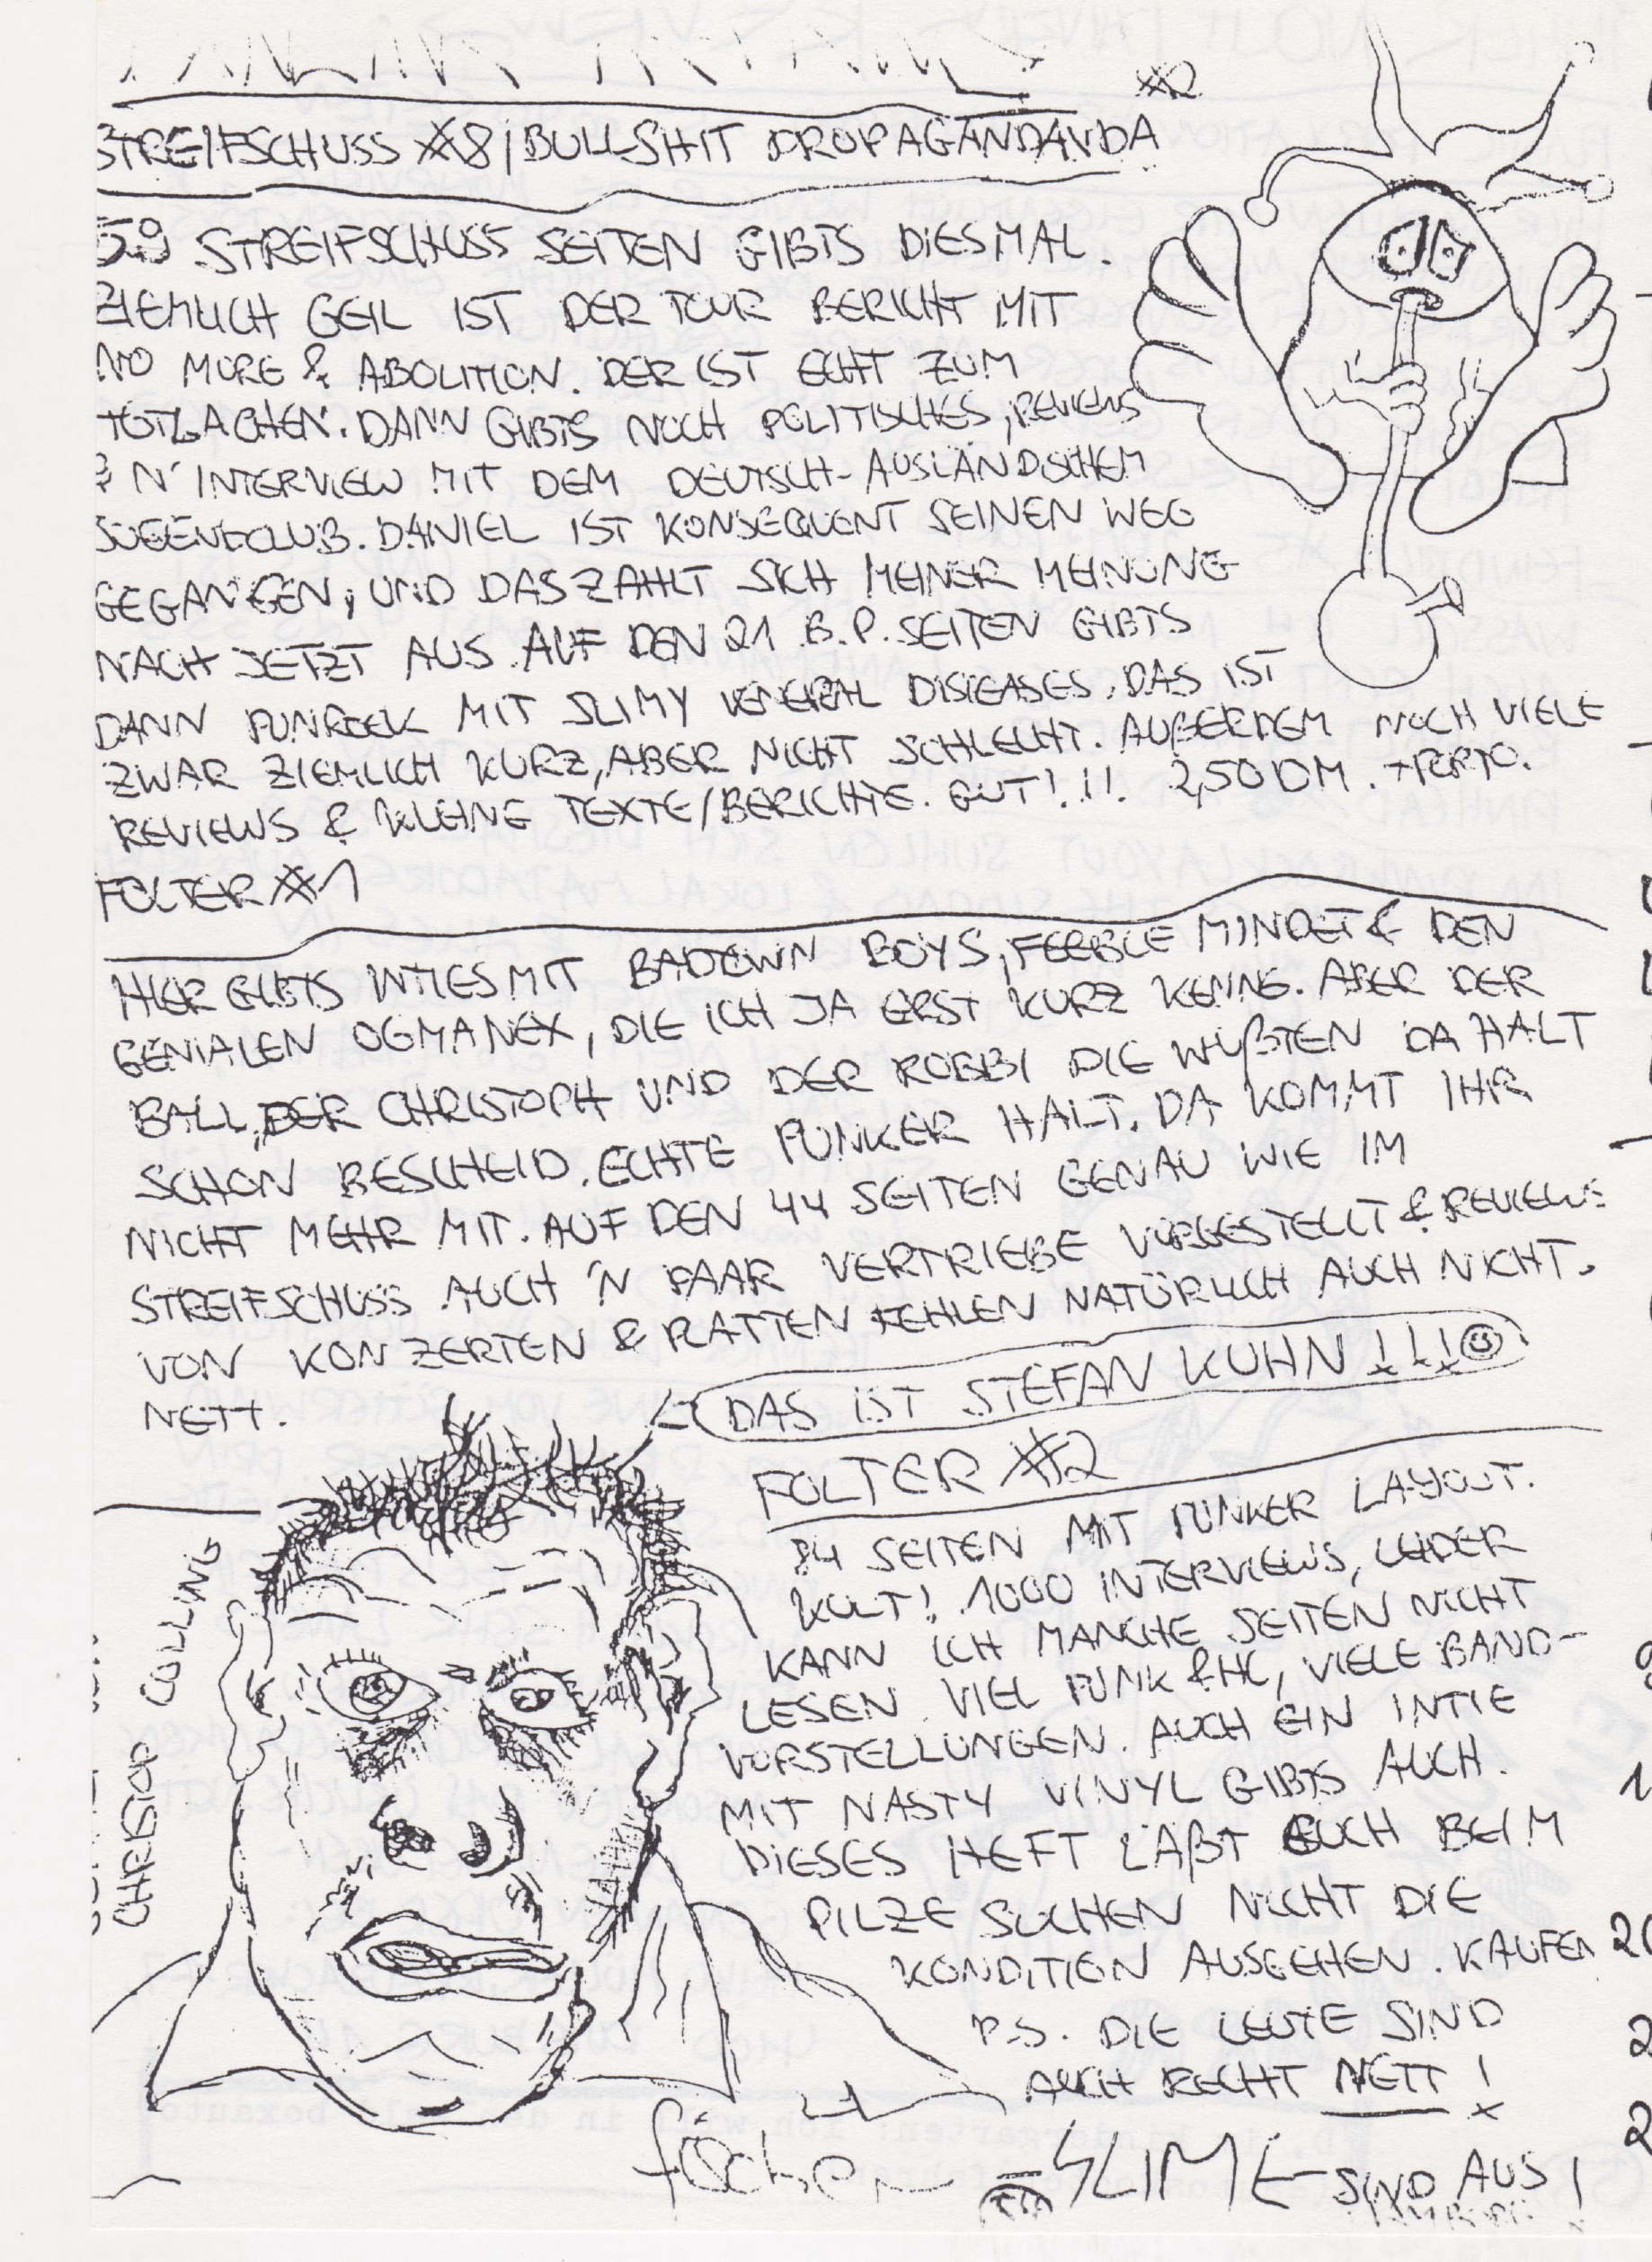 #2
STREIFSCHUSS #8/BULLSHIT PROPAGANDANDA
59 STREIFSCHUSS SEITEN GIBTS DIESMAL.
ZIEMLICH GEIL IST DER TOUR BERICHT MIT
NO MORE & ABOLITION. DER IST ECHT ZUM
TOTLACHEN. DANN GIBTS NOCH POLITISCHES, REVIEWS
& N' INTERVIEW MIT DEM DEUTSCH-AUSLÄNDISCHEM
JUGENDCLUB. DANIEL IST KONSEQUENT SEINEN WEG
GEGANGEN, UND DAS ZAHLT SICH MEINER MEINUNG
NACH JETZT AUS. AUF DEN 21 B.P. SEITEN GIBTS
DANN PUNROCK MIT SLIMY VENERAL DISIEASES. DAS IST
ZWAR ZIEMLICH KURZ, ABER NICHT SCHLECHT. AUßERDEM NOCH VIELE
REVIEWS & KLEINE TEXTE/BERICHTE. GUT!!! 2,50 DM. +PORTO.
FOLTER #1
HIER GIBTS INTIES MIT BADTOWN BOYS, FEEBLE MINDET & DEN
GENIALEN OGMANEX, DIE ICH JA ERST KURZ KENNE. ABER DER
BALL, DER CHRISTOPH UND DER ROBBI DIE WUßTEN DA HALT
SCHON BESCHEID. ECHTE PUNKER HALT. DA KOMMT IHR
NICHT MEHR MIT. AUF DEN 44 SEITEN GENAU WIE IM
STREIFSCHUSS AUCH 'N PAAR VERTRIEBE VORGESTELLT & REVIEWS
VON KONZERTEN & PLATTEN FEHLEN NATÜRLICH AUCH NICHT.
NETT.
DAS IST STEFAN KUHN !!!
FOLTER #2
34 SEITEN MIT PUNKER LAYOUT.
KULT! 1000 INTERVIEWS, LEIDER
KANN ICH MANCHE SEITEN NICHT
LESEN. VIEL PUNK & HC, VIELE BAND-
VORSTELLUNGEN. AUCH EIN INTIE
MIT NASTY VINYL GIBTS AUCH.
DIESES HEFT LÄßT EUCH BEIM
PILZE SUCHEN NICHT DIE
KONDITION AUSGEHEN. KAUFEN
P.S. DIE LEUTE SIND
AUCH RECHT NETT!
CHRISTOP COLLING
SLIME SIND AUS !